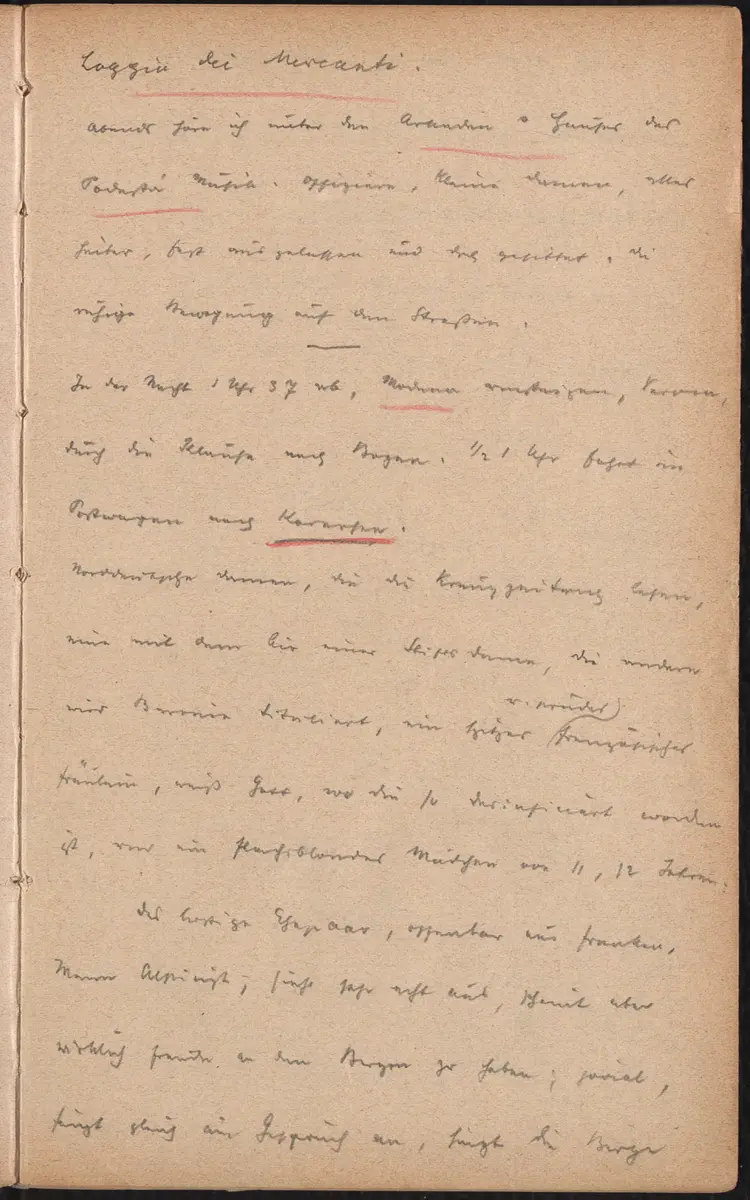 Loggia dei Mercanti.
abends höre ich unter den Arkaden d Hauses des
Podestà Musik. Offiziere, kleine Damen, alles
heiter, fast ausgelassen und doch gesittet, die
ruhige Bewegung auf den Straßen.
In der Nacht 1 Uhr 37 ab, Modena umsteigen, Verona,
durch die Klause nach Bozen. 1/2 1 Uhr Fahrt im
Postwagen nach Karersee.
Norddeutsche Damen, die die Kreuzzeitung lesen,
eine mit dem Air einer Stiftsdame, die andere
wird Baronin tituliert, ein spitzes französisches
v. prüdes
Fräulein, weiß Gott, wo die so desinficiert worden
ist, und ein flachsblondes Mädchen von 11, 12 Jahren.
das lustige Ehepaar, offenbar aus Franken,
Mann Alpinist; sieht sehr echt aus, scheint aber
wirklich Freude an den Bergen zu haben; jovial,
fängt gleich ein Gespräch an, singt die Berge